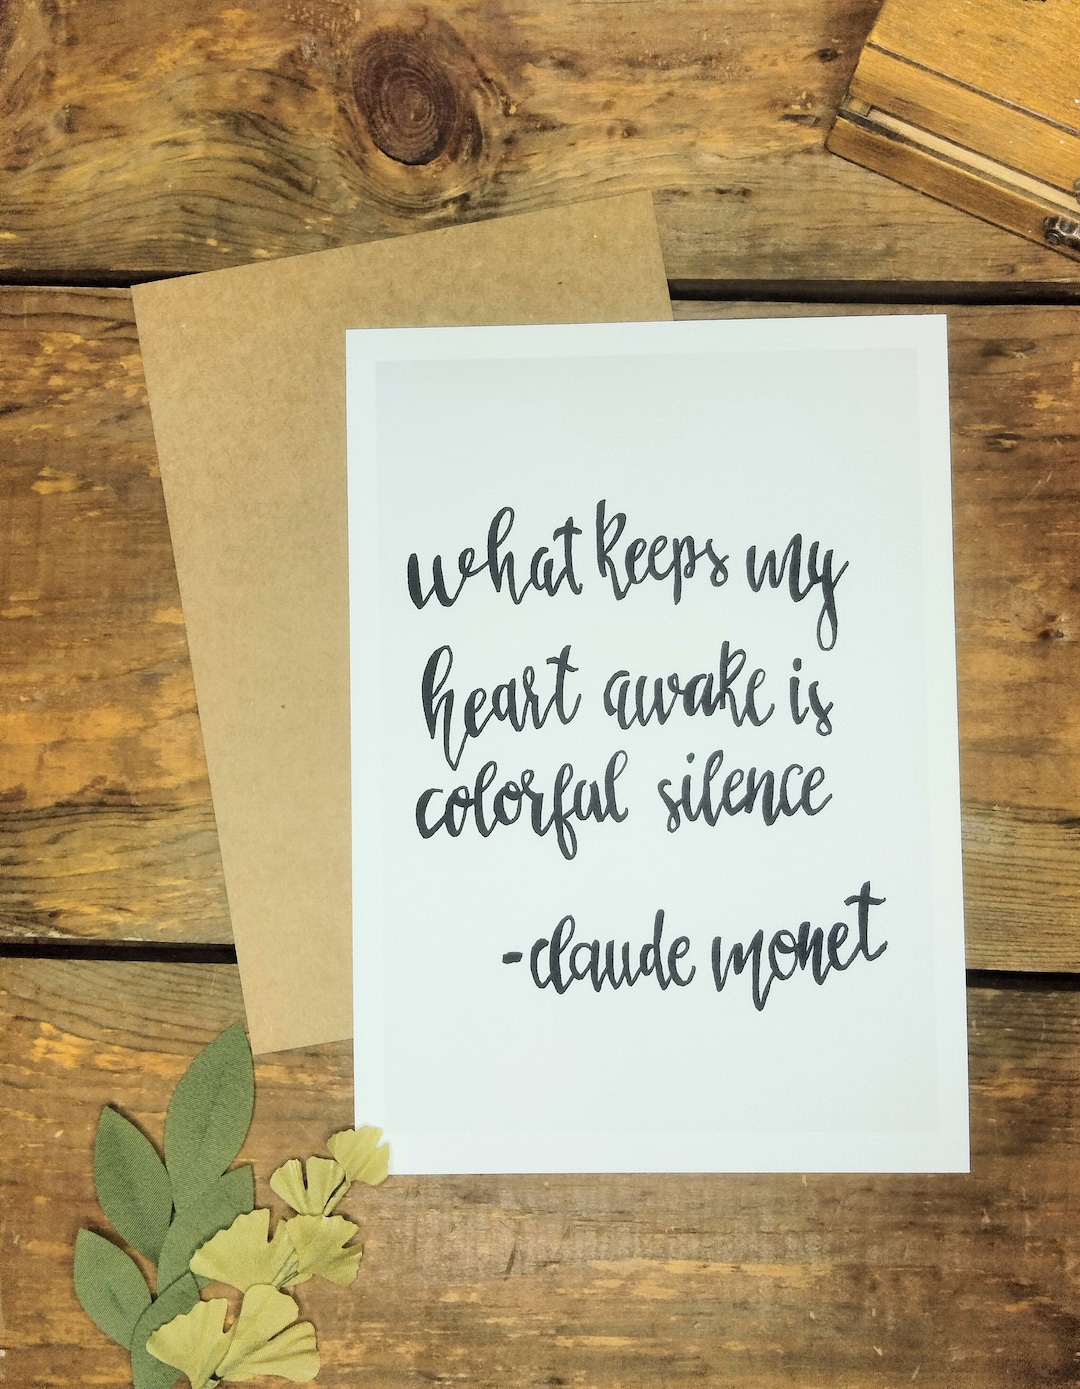 what keeps my
heart awake is
colorful silence
-claude monet